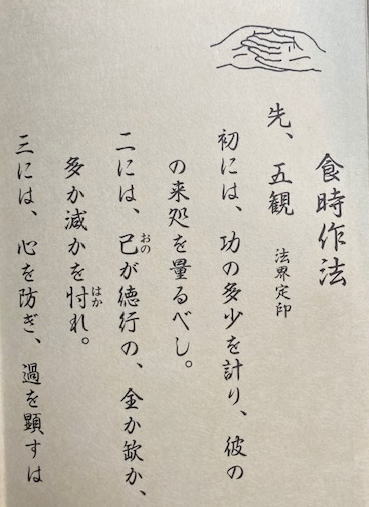 食時作法
先、五観 法界定印
初には、功の多少を計り、彼の
の来処を量るべし。
二には、己が徳行の、全か缺か、
多か減かを忖れ。
三には、心を防ぎ、過を顕すは